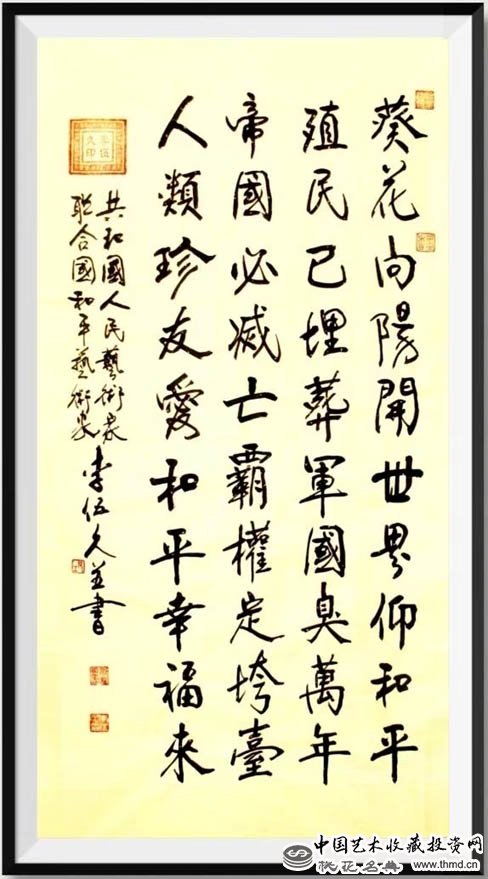 葵花向陽開世界仰和平
殖民已埋葬軍國臭萬年
帝國必滅亡霸權定垮臺
人類珍友愛和平幸福來
共和國人民藝術家
聯合國和平藝術家
李伍久並書
李伍久印
中国艺术收藏投资网
桃花名典 www.thmd.cn